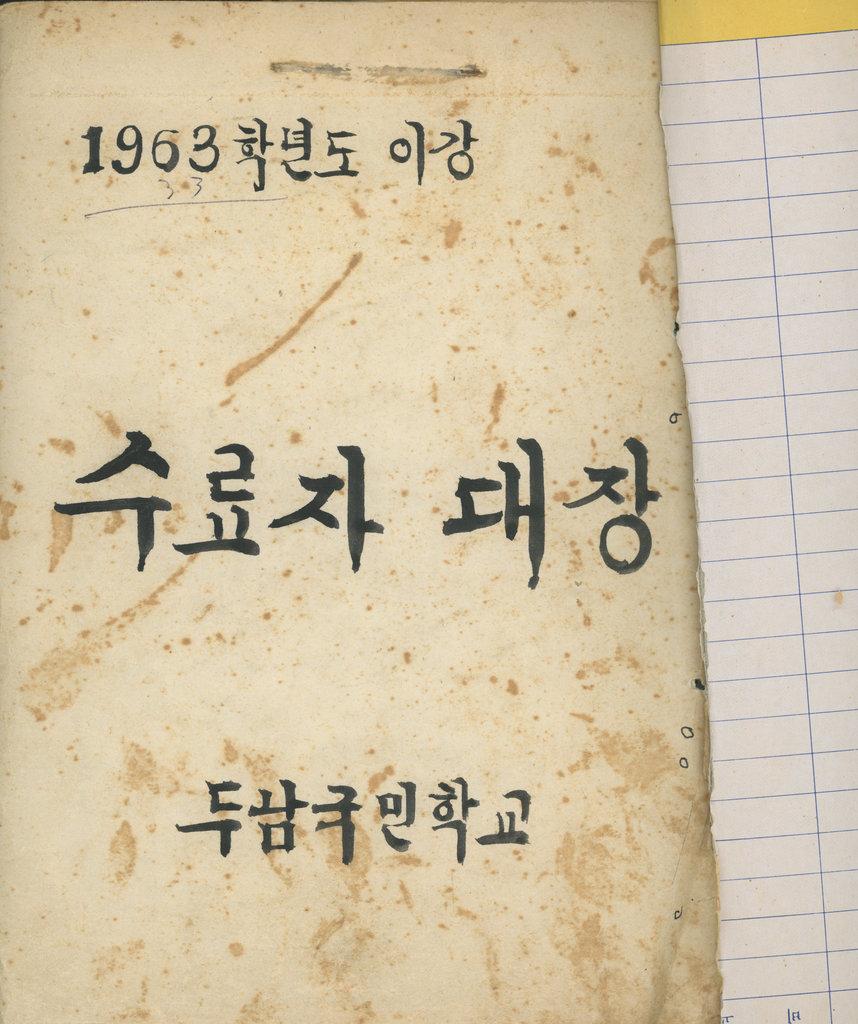 1963학년도 이강
33
수료자 대장
두삼국민학교